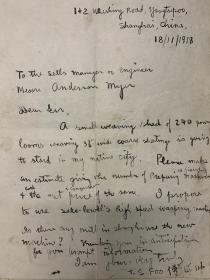 Road, Yangtszepoo,
Shanghai, China.
18/11/1918
To the Sells manager or Engineer
Messrs Anderson Myer
Dear Sir,
A small weaving shed of 240 power
looms weaving 36" wide coarse sheeting is going
to start in my native city. Please make
an estimate giving the number of Preparing Machinery
& the net price of the same. I propose
to use high speed warping
Is there any mill in shanghai used the new
machine? Thanking you in anticipation
for your prompt information
I am yours very truly
T. S. Foo